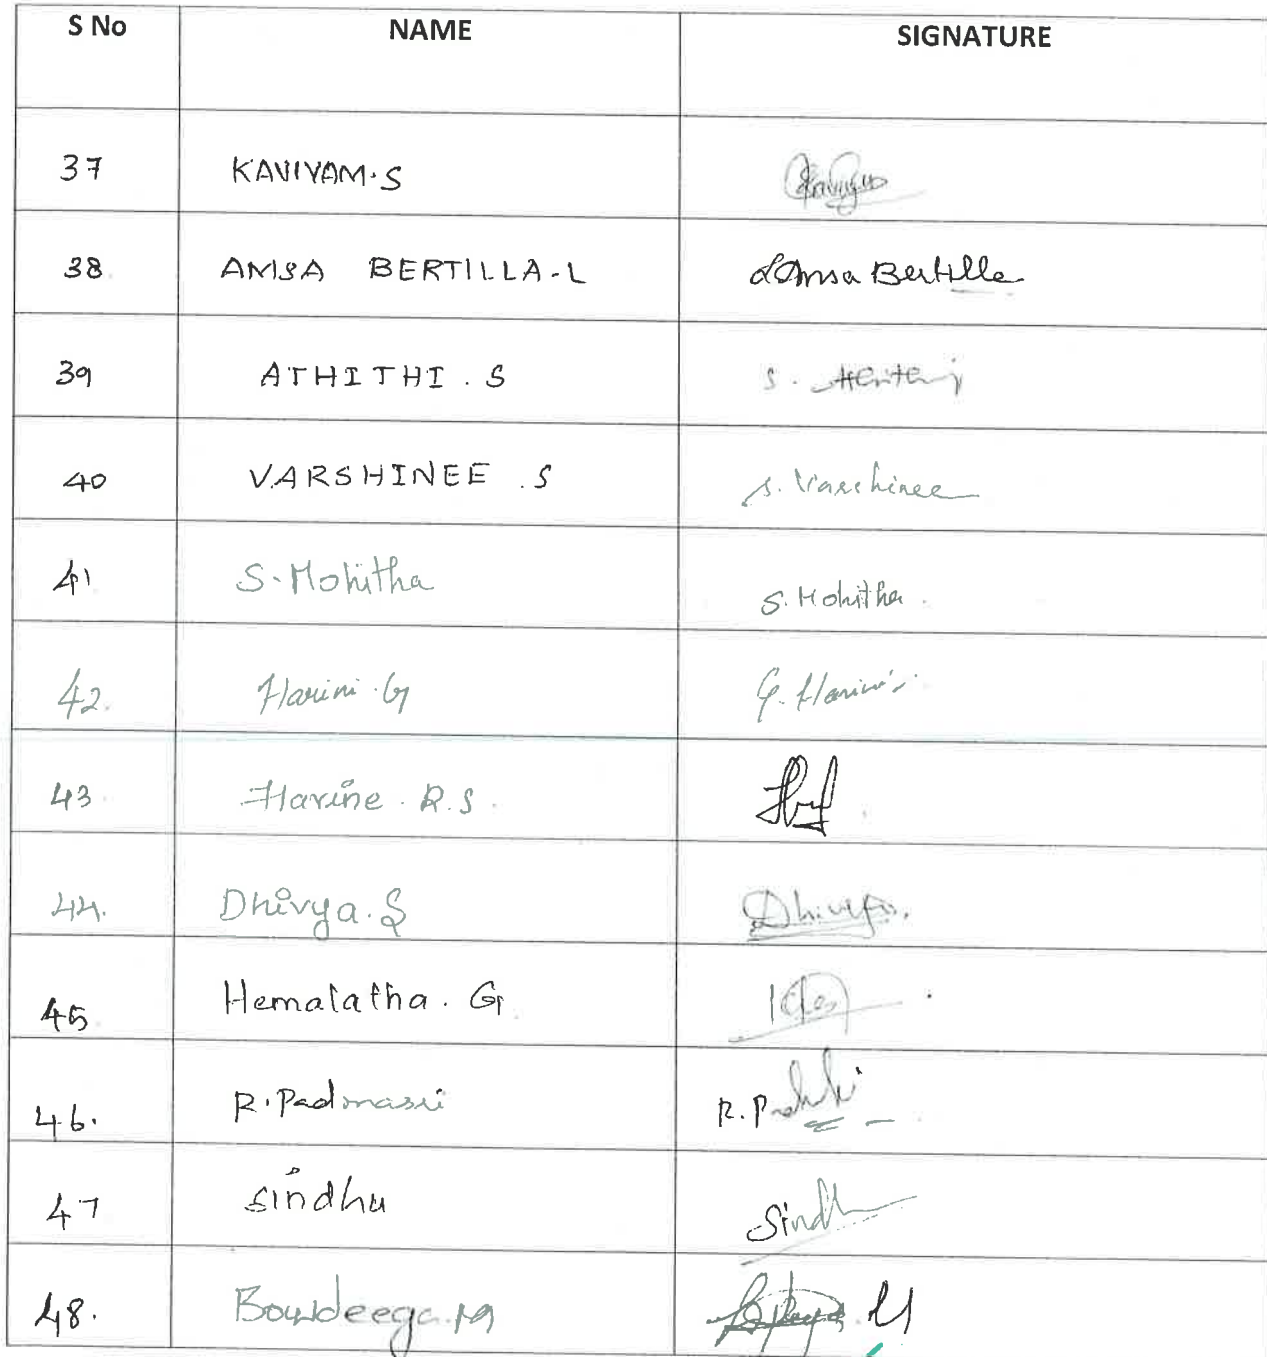 S No NAME SIGNATURE
37 KAVIYAM.S
38 AMSA BERTILLA-L L Amsa Bertille
39 ATHITHI . S S.
40 VARSHINEE . S S. Varshinee
41 S.Mohitha S. Mohitha .
42. Harini . G G. Harini
43 Harine . R.S.
44. Dhivya.S Dhivya.
45 Hemalatha . G
46. R.Padmasri R.
47 Sindhu Sindh
48.